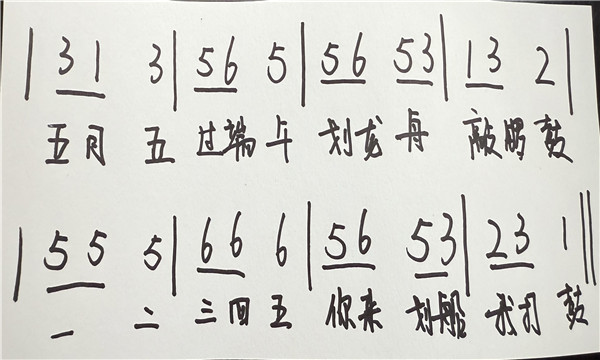 | 3 1 3 | 5 6 5 | 5 6 5 3 | 1 3 2 |
五月 五 过端午 划龙舟 敲腰鼓
| 5 5 5 | 6 6 6 | 5 6 5 3 | 2 3 1 ‖
一 二 三四五 你来 划船 我打 鼓